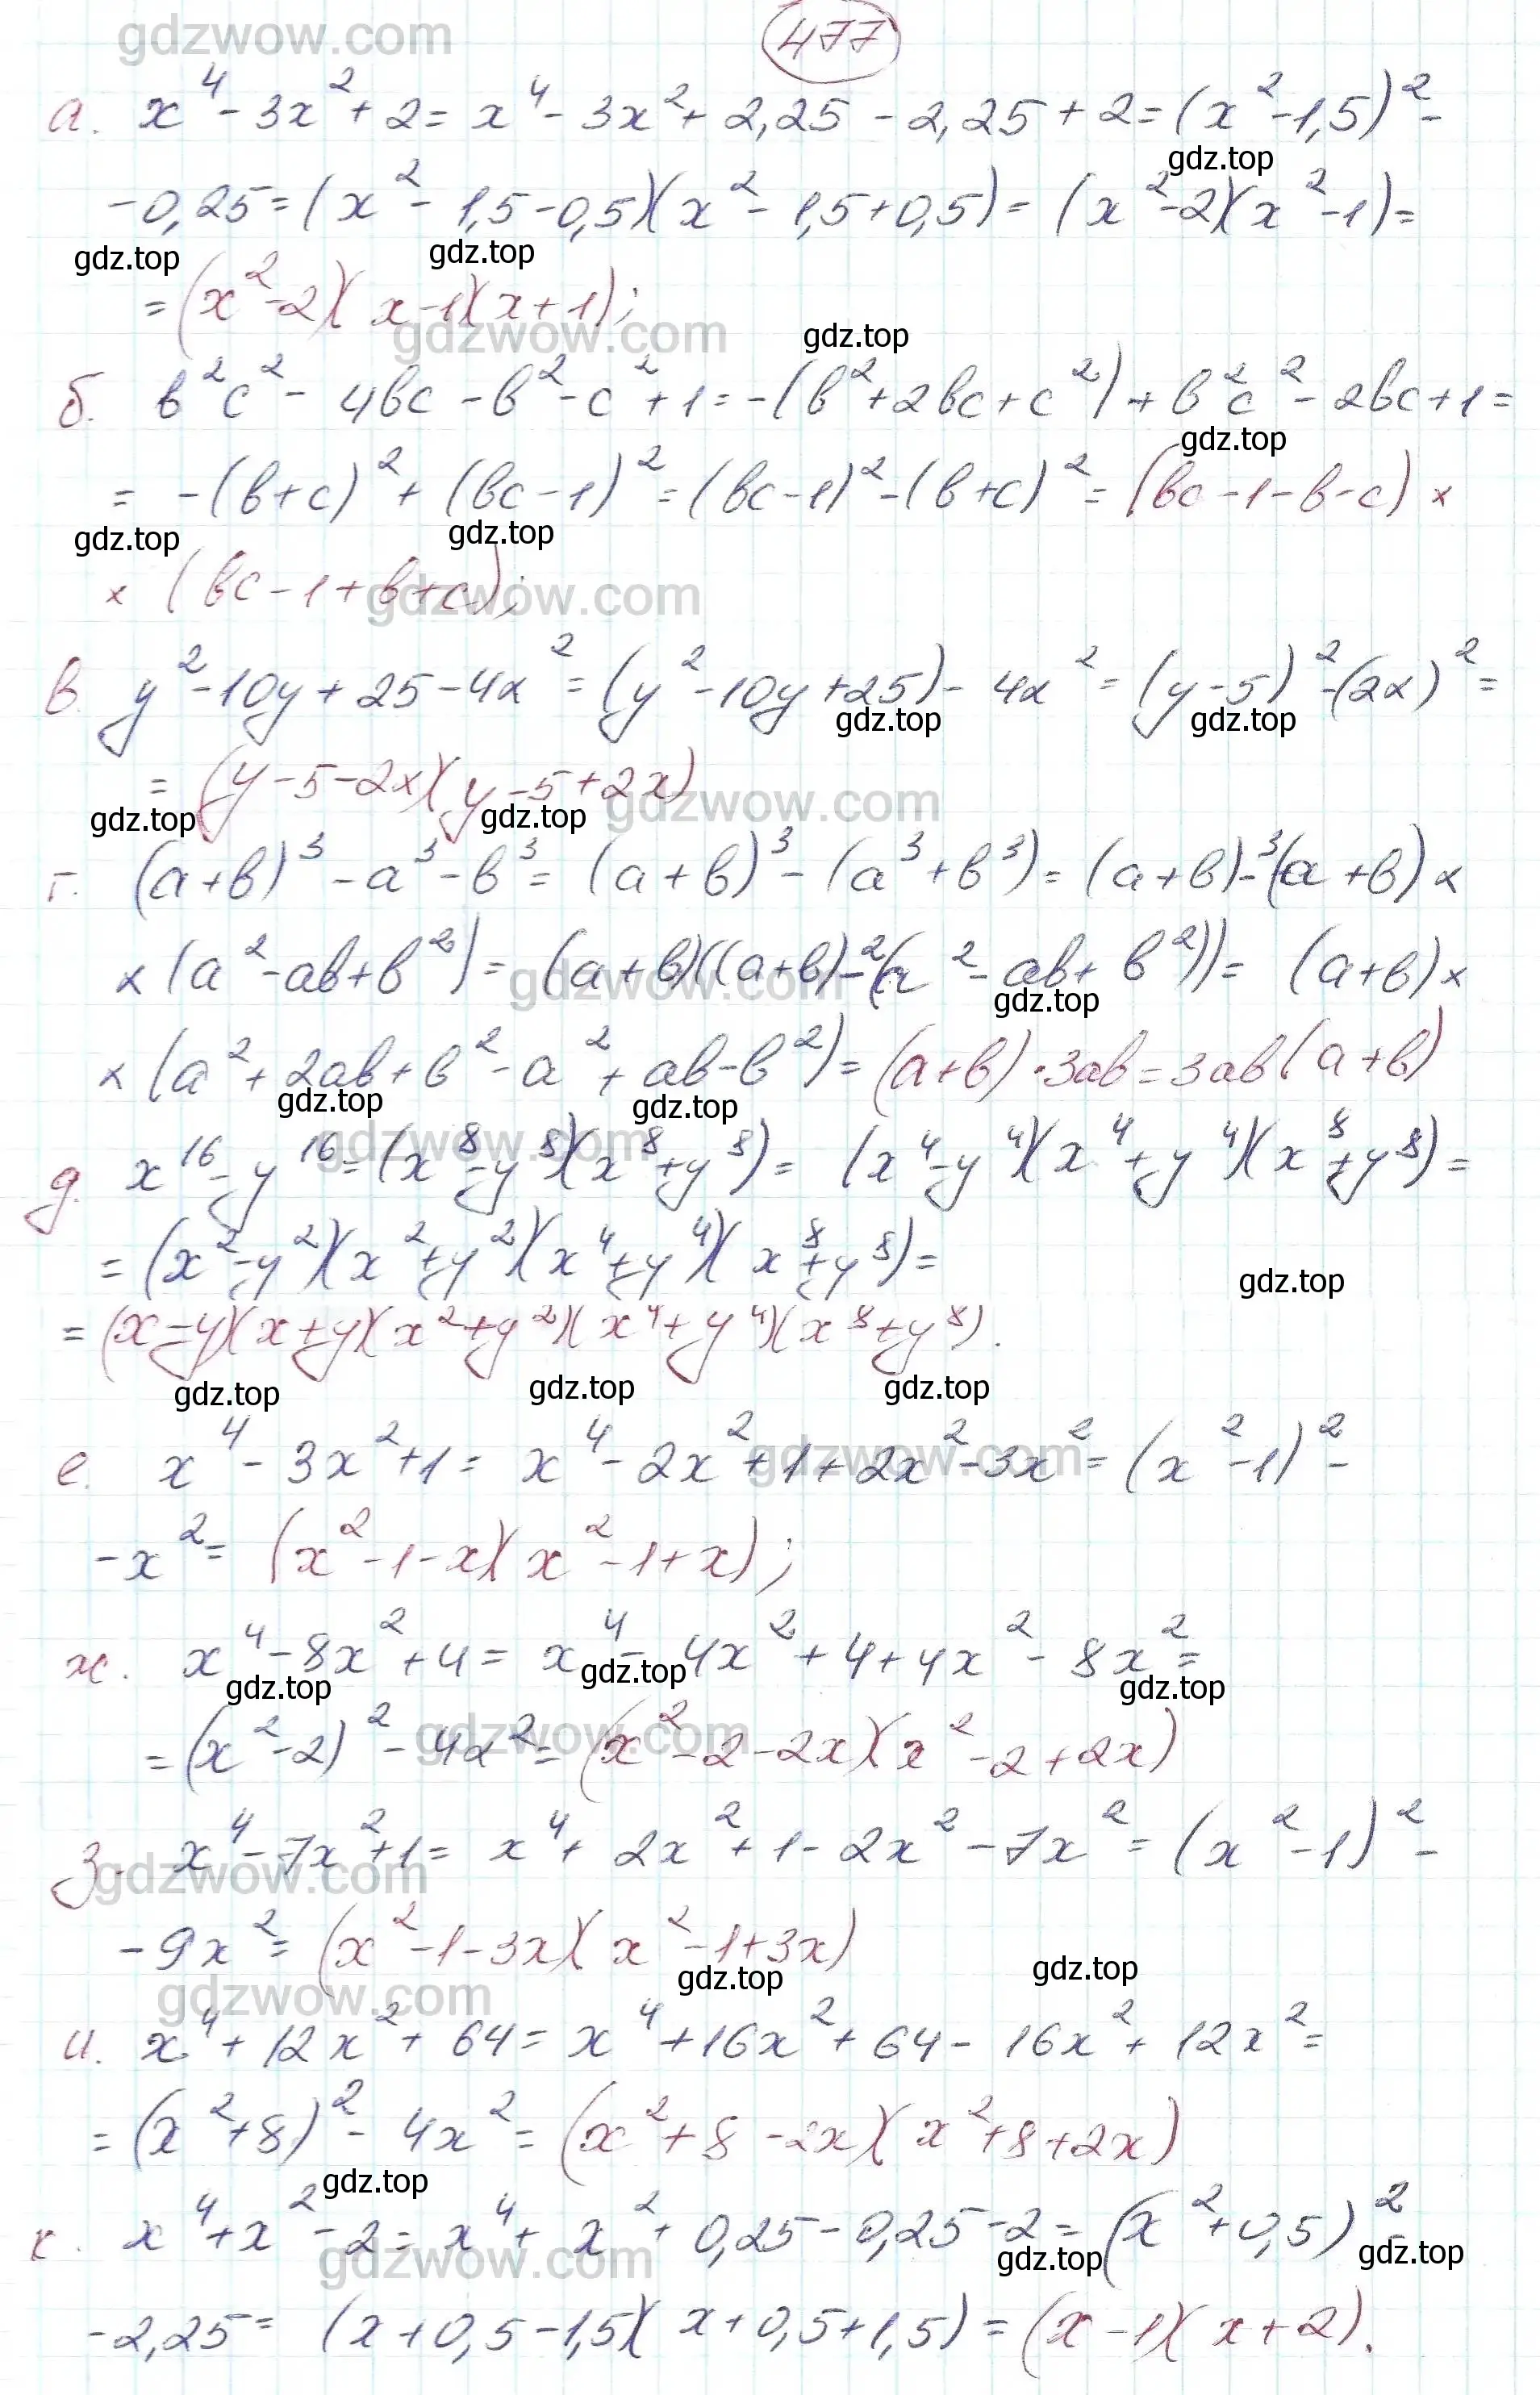 gdzwow.com
477
а. x⁴ - 3x² + 2 = x⁴ - 3x² + 2,25 - 2,25 + 2 = (x² - 1,5)² -
gdz.top
- 0,25 = (x² - 1,5 - 0,5)(x² - 1,5 + 0,5) = (x² - 2)(x² - 1) =
gdz.top gdz.top
= (x² - 2)(x - 1)(x + 1);
gdzwow.com gdz.top
б. в²с² - 4вс - в² - с² + 1 = -(в² + 2вс + с²) + в²с² - 2вс + 1 =
gdz.top
= -(в + с)² + (вс - 1)² = (вс - 1)² - (в + с)² = (вс - 1 - в - с) ×
gdz.top gdz.top
× (вс - 1 + в + с);
gdzwow.com
в. y² - 10y + 25 - 4x² = (y² - 10y + 25) - 4x² = (y - 5)² - (2x)² =
gdz.top gdz.top
= (y - 5 - 2x)(y - 5 + 2x)
gdzwow.com
gdz.top gdz.top
г. (а + в)³ - а³ - в³ = (а + в)³ - (а³ + в³) = (а + в)³ - (а + в) ×
× (а² - ав + в²) = (а + в)((а + в)² - (а² - ав + в²)) = (а + в) ×
gdzwow.com gdz.top
× (а² + 2ав + в² - а² + ав - в²) = (а + в) · 3ав = 3ав(а + в)
gdz.top gdz.top
gdzwow.com
д. x¹⁶ - y¹⁶ = (x⁸ - y⁸)(x⁸ + y⁸) = (x⁴ - y⁴)(x⁴ + y⁴)(x⁸ + y⁸) =
= (x² - y²)(x² + y²)(x⁴ + y⁴)(x⁸ + y⁸) =
gdz.top
= (x - y)(x + y)(x² + y²)(x⁴ + y⁴)(x⁸ + y⁸).
gdz.top gdz.top gdz.top
е. x⁴ - 3x² + 1 = x⁴ - 2x² + 1 + 2x² - 3x² = (x² - 1)² -
gdzwow.com
- x² = (x² - 1 - x)(x² - 1 + x);
ж. x⁴ - 8x² + 4 = x⁴ - 4x² + 4 + 4x² - 8x² =
gdz.top gdz.top gdz.top
= (x² - 2)² - 4x² = (x² - 2 - 2x)(x² - 2 + 2x)
gdzwow.com
з. x⁴ - 7x² + 1 = x⁴ + 2x² + 1 - 2x² - 7x² = (x² - 1)² -
gdzwow.com
- 9x² = (x² - 1 - 3x)(x² - 1 + 3x)
gdz.top gdz.top
gdzwow.com
и. x⁴ + 12x² + 64 = x⁴ + 16x² + 64 - 16x² + 12x² =
= (x² + 8)² - 4x² = (x² + 8 - 2x)(x² + 8 + 2x)
gdz.top
к. x⁴ + x² - 2 = x⁴ + x² + 0,25 - 0,25 - 2 = (x² + 0,5)² -
gdzwow.com gdz.top gdz.top
- 2,25 = (x + 0,5 - 1,5)(x + 0,5 + 1,5) = (x - 1)(x + 2).